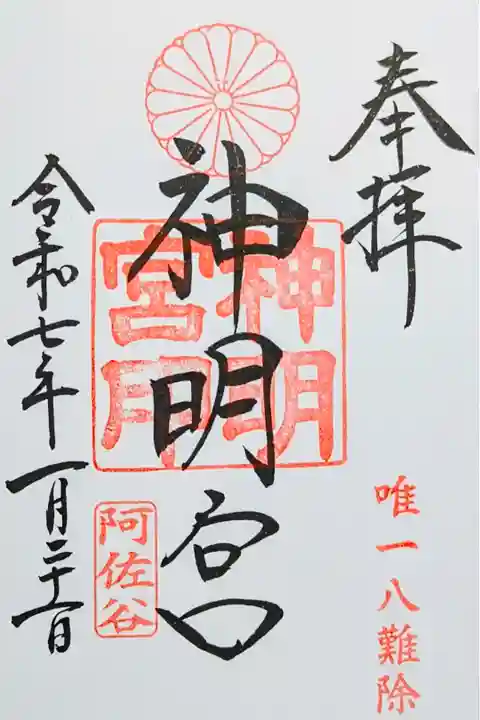 奉拝
唯一八難除
神明宮
神明
宮用
阿佐谷
令和七年一月二十一日